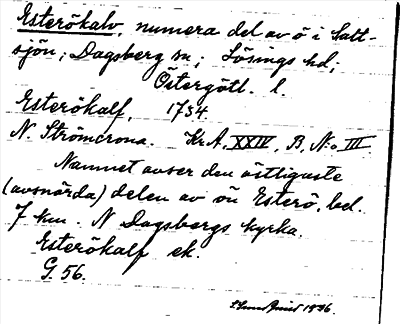 Esterökalv, numera del av ö i Salt-
sjön; Dagsberg sn; Lösings hd;
Östergötl. l.
Esterökalf, 1734.
N. Strömcrona. Kr.A. XXIV, B, N:o III.
Namnet avser den östligaste
(avsnörda) delen av ön Esterö, bel.
7 km. N Dagsbergs kyrka.
Esterökalf ek.
G. 56.
1896.